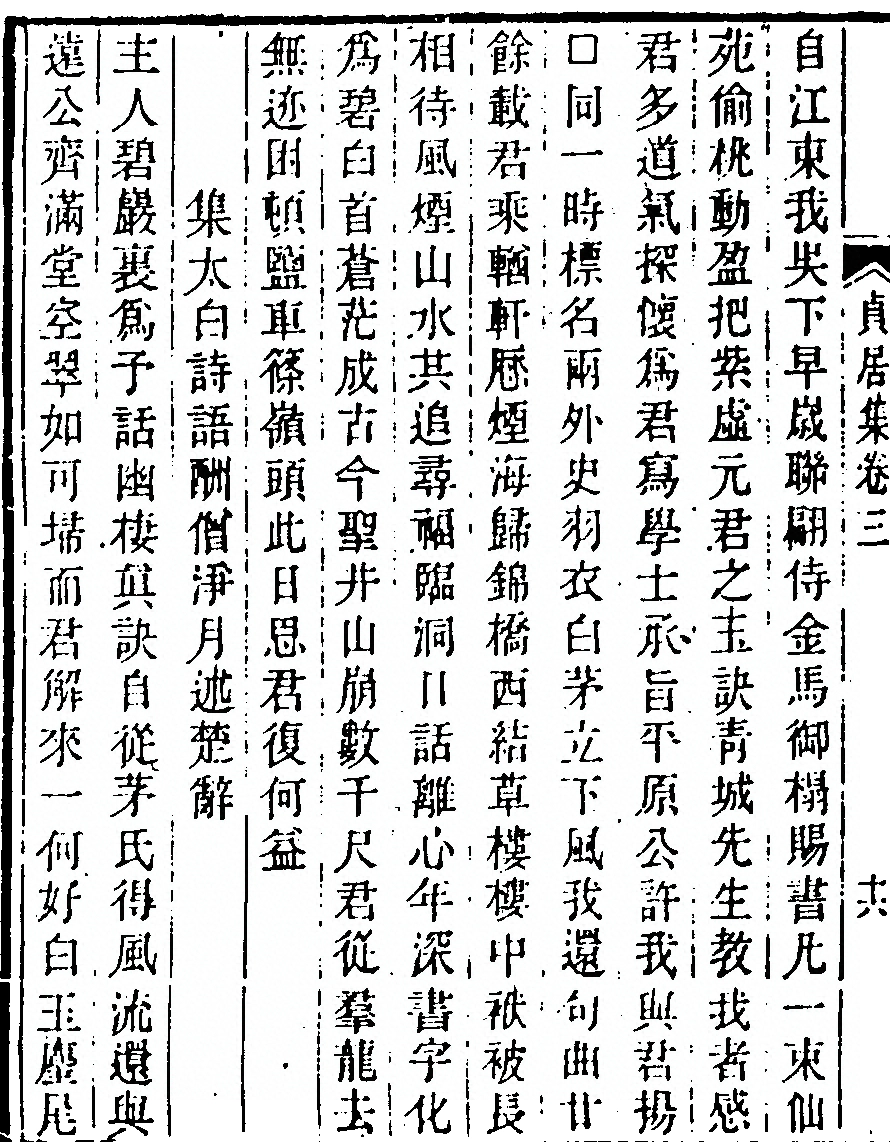 貞居集卷三
十六
自江東我失下早歲聯翩侍金馬御榻賜書凡一束仙
苑偷桃動盈把紫虛元君之玉訣靑城先生教我者感
君多道氣探懷爲君寫學士承旨平原公許我與君揚
□同一時標名兩外史羽衣白茅立下風我還句曲廿
餘載君乘輶軒歷煙海歸錦橋西結草樓樓中袱被長
相待風煙山水共追尋福臨洞口話離心年深書字化
爲碧白首蒼茫成古今聖井山崩數千尺君從羣龍去
無迹困頓鹽車篠嶺頭此日思君復何益
集太白詩語酬僧淨月述楚辭
主人碧巖裏爲予話幽棲眞訣自從茅氏得風流還與
遠公齊滿堂空翠如可埽而君解來一何好白玉麈尾